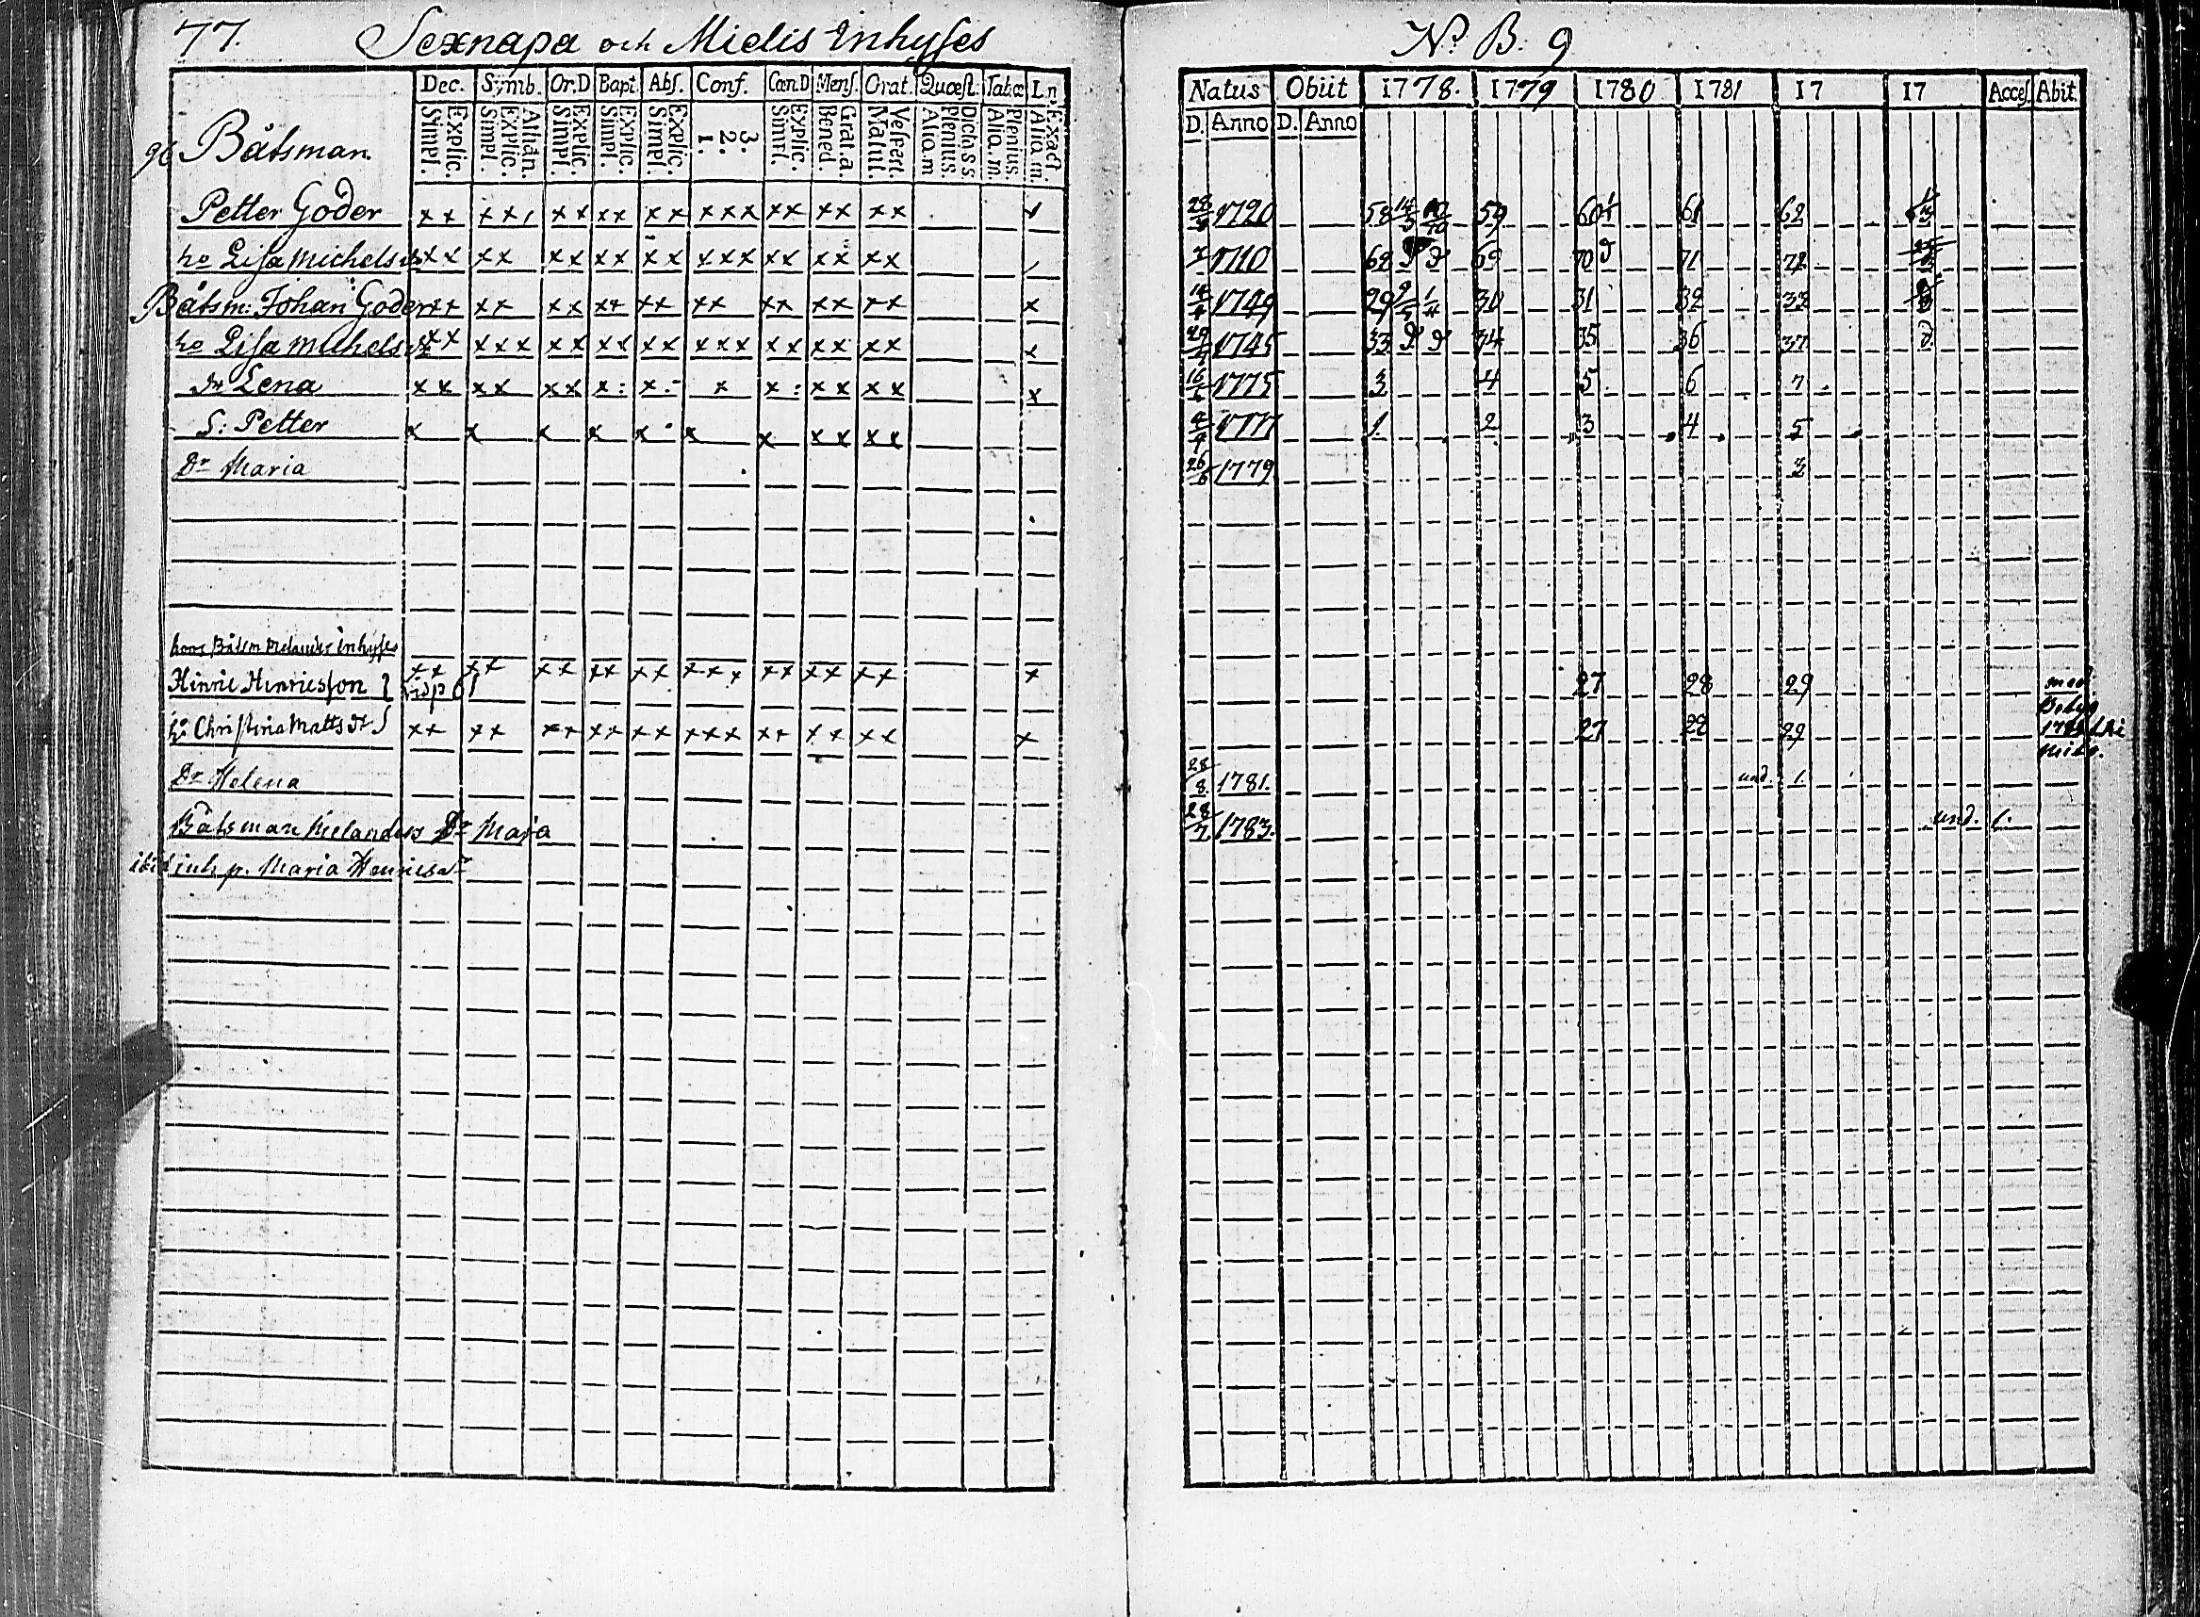 77. Sexnapa och Mielis Inhyses
Dec. Symb. Or.D Bapt. Abs. Conf. Cœn.D Mens. Orat. Quœst. Tab.œ Ln.
Explic. Simpl. Athan. Explic. Simpl. Explic. Simpl. Explic. Simpl. Explic. Simpl. 3. 2. 1. Explic. Simpl. Grat.a. Bened. Vespert. Matut. Dict.a S.S. Plenius. Aliq.m Plenius. Aliq.m. Exact. Aliq.m.
96 Båtsman
Petter Goder xx xx xx xx xx xxx xx xx xx
ho Lisa Michelsdr xx xx xx xx xx xxx xx xx xx
Båtsm: Johan Goder xx xx xx xx xx xx xx xx xx x
ho Lisa Michelsdr xx xxx xx xx xx xxx xx xx xx x
Dr Lena xx xx xx x: x:- x x: xx xx x
S: Petter x x x x x x x xx xx
Dr Maria
hoos Båtsm Melander Inhyses
Hinric Hinricsson xx xx xx xx xx xxx xx xx xx x
ho Christina Matts dr xx xx xx xx xx xxx xx xx xx x
Dr Helena
Båtsman Melanders Dr Maja
ibid inh. p. Maria Henricsdr
No B: 9
Natus Obiit 1778. 1779 1780 1781 17 17 Acces. Abit.
D. Anno D. Anno
28 1720 58 59 60 61 62
1710 68 69 70 71 72
1749 29 30 31 32 33
1745 33 34 35 36 37
16 1775 3 4 5 6 7
1777 1 2 3 4 5
26/6 1779 3
27 28 29
27 28 29
28/8. 1781. und. 1.
28/7 1783. und. 1.